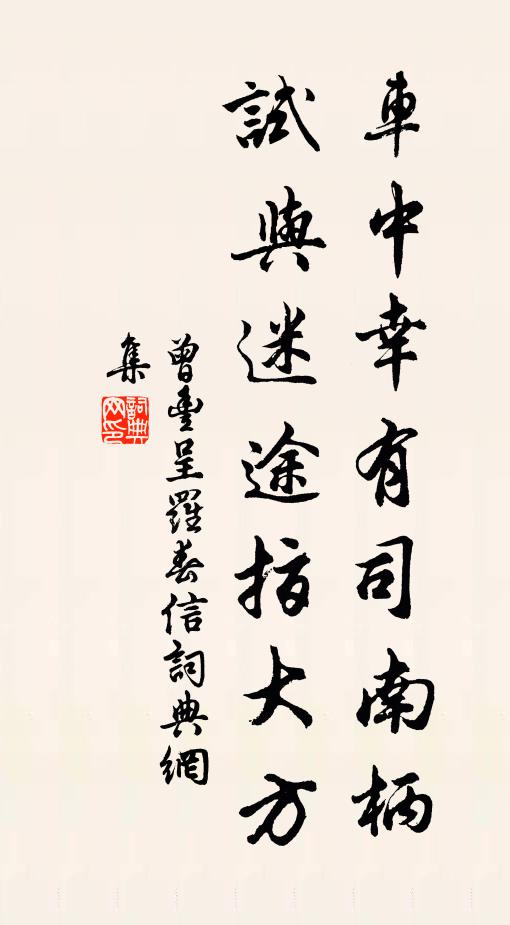 車中幸有司南柄
試與迷途指大方
曾豐呈羅春信詞典網
集
詞典
网印